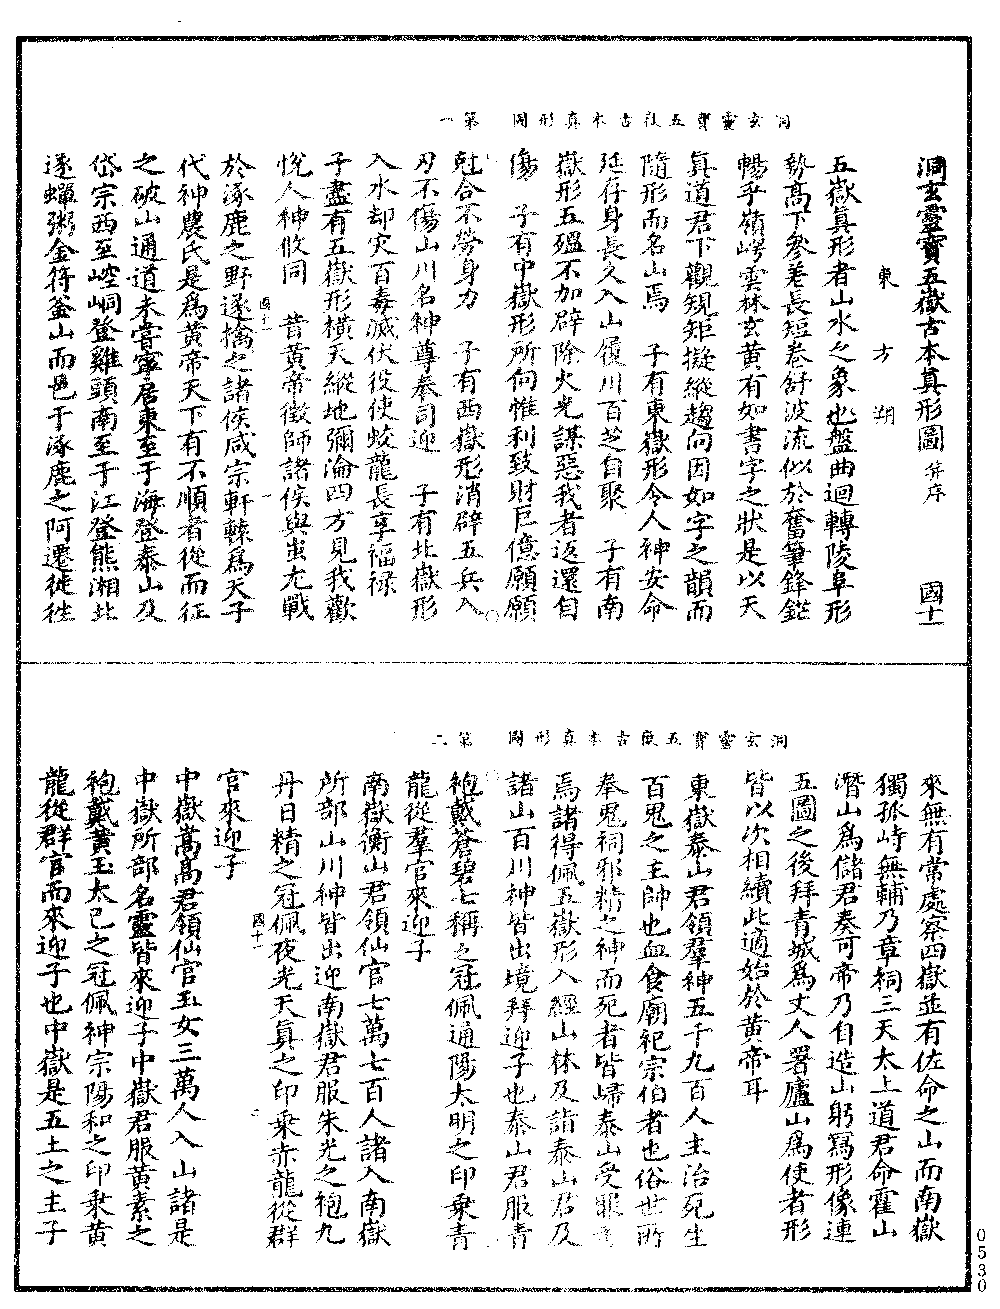 洞玄靈寶五嶽古本真形圖　第一
洞玄靈寶五嶽古本真形圖并序　國十一
東方朔
五嶽真形者山水之象也盤曲迴轉陵阜形
勢高下參差長短卷舒波流似於奮筆鋒鋩
暢乎嶺崿雲林玄黃有如書字之狀是以天
真道君下觀規矩擬縱趨向因如字之韻而
隨形而名山焉　子有東嶽形令人神安命
延存身長久入山履川百芝自聚　子有南
嶽形五瘟不加辟除火光謀惡我者返還自
傷　子有中嶽形所向惟利致財巨億願願
尅合不勞身力　子有西嶽形消辟五兵入
刃不傷山川名神尊奉司迎　子有北嶽形
入水却灾百毒滅伏役使蛟龍長享福祿
子盡有五嶽形橫天縱地彌淪四方見我歡
悅人神攸同　昔黃帝徵師諸侯與蚩尤戰
於涿鹿之野遂擒之諸侯咸宗軒轅爲天子
代神農氏是爲黃帝天下有不順者從而征
之破山通道未嘗寧居東至于海登泰山及
岱宗西至崆峒登雞頭南至于江登熊湘北
逐蠟粥金符釜山而邑于涿鹿之阿遷徙往
洞玄靈寶五嶽古本真形圖　第二
來無有常處察四嶽並有佐命之山而南嶽
獨孤峙無輔乃章祠三天太上道君命霍山
潛山爲儲君奏可帝乃自造山躬寫形像連
五圖之後拜青城爲丈人署廬山爲使者形
皆以次相續此適始於黃帝耳
東嶽泰山君領羣神五千九百人主治死生
百鬼之主帥也血食廟祀宗伯者也俗世所
奉鬼祠邪精之神而死者皆歸泰山受罪考
焉諸得佩五嶽形入經山林及詣泰山君及
諸山百川神皆出境拜迎子也泰山君服青
袍戴蒼碧七稱之冠佩通陽太明之印乘青
龍從羣官來迎子
南嶽衡山君領仙官七萬七百人諸入南嶽
所部山川神皆出迎南嶽君服朱光之袍九
丹日精之冠佩夜光天真之印乘赤龍從群
官來迎子
中嶽嵩高君領仙官玉女三萬人入山諸是
中嶽所部名靈皆來迎子中嶽君服黃素之
袍戴黃玉太己之冠佩神宗陽和之印乘黃
龍從群官而來迎子也中嶽是五土之主子
0530